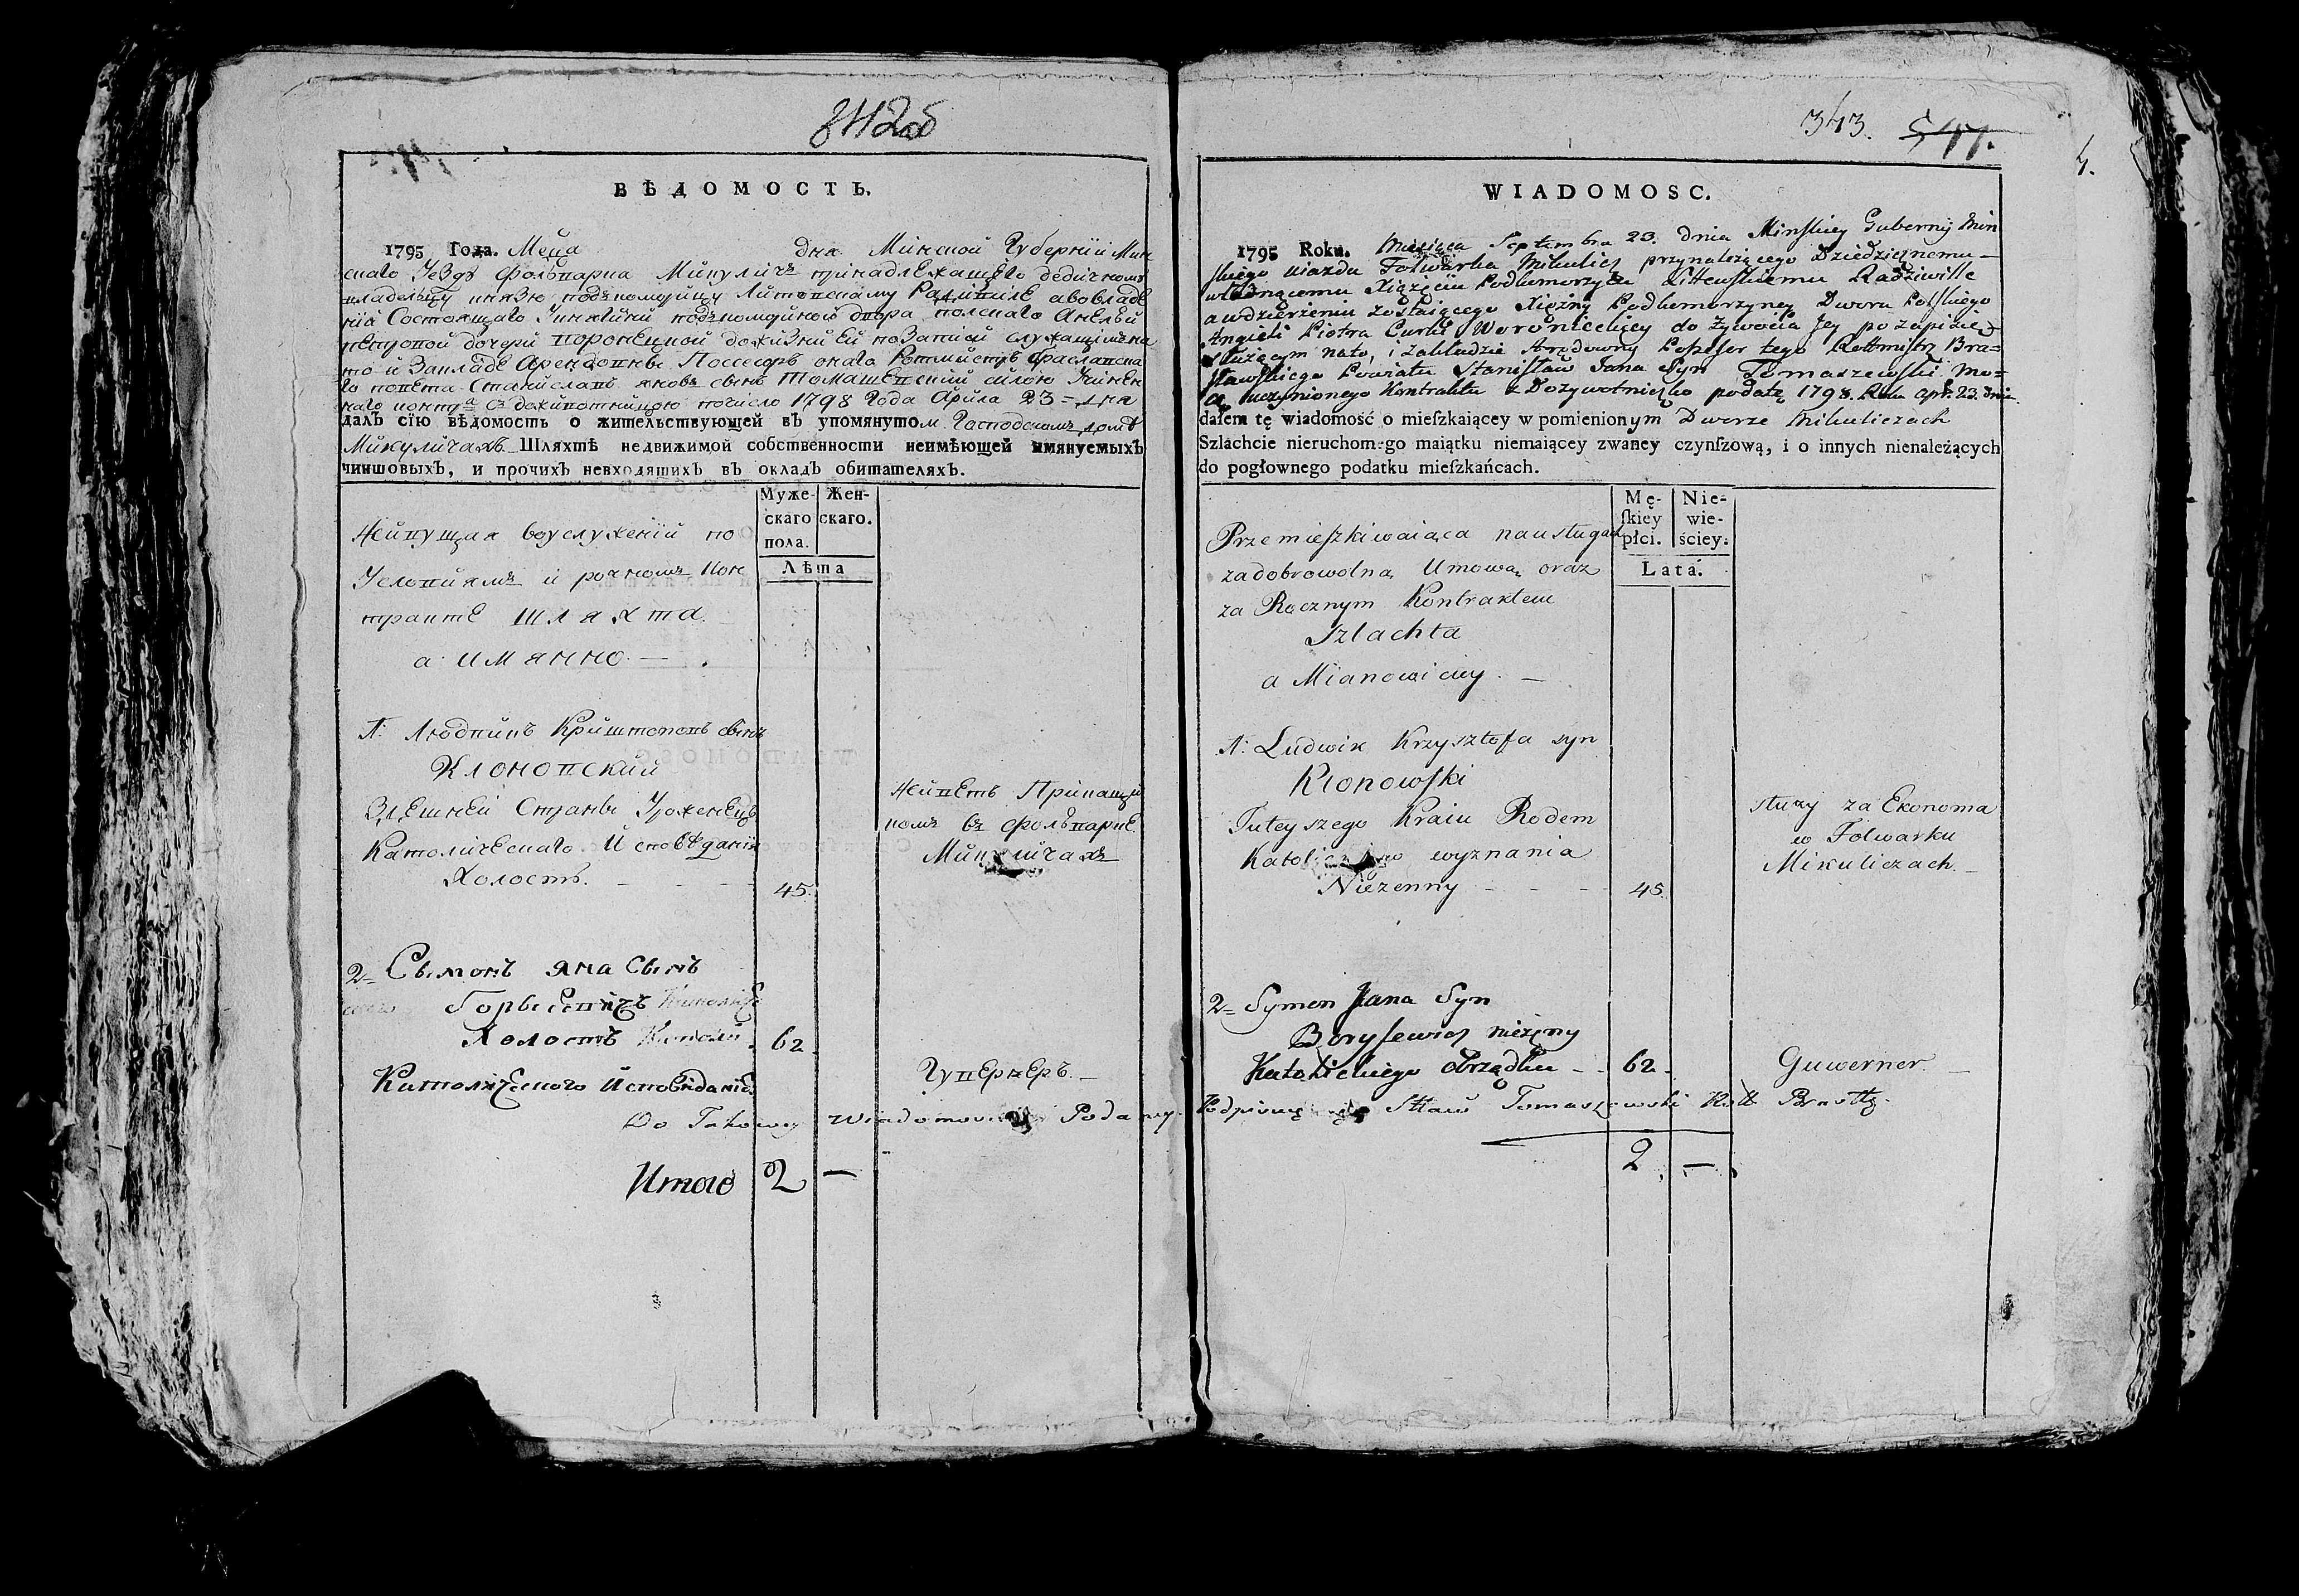 342об
ВѢДОМОСТЬ.
1795 Года. Мсца дня Минской Губернїи Мин
скаго Уезда фольварка Микуличъ принадлежащего дедичному
владельцу князю подкоморому Литовскому Радивиле авовладе
нїи Состоящаго Княгини подкомориной двора полскаго Анели
петровой дочери Воронецкой дожизни ей позаписи служащимъ на
то и Закладе Арендовны Поссесоръ онаго Ротмистръ браславска
го повета Станиславъ яновъ сынъ Томашевский силою Учинен
наго контра съ доживотницою почисло 1798 Года Априла 23 = дня
далъ сїю вѣдомость о жительствующей въ упомянутом Господскомъ доме
Микуличахъ Шляхтѣ недвижимой собственности неимѣющей имянуемыхъ
чиншовыхъ, и прочихъ невходящихъ въ окладъ обитателяхъ.
Муже-
скаго
пола.
Жен-
скаго.
Лѣта
Живущая воуслужении по
Условиямъ и рочномъ кон
тракте шляхта
а имянно. —
1: Людвикъ Криштофовъ сынъ
Клоновский
Здешней Страны Уроженецъ
Католического Исповедания
Холостъ. - - - 45.
Живетъ Прикащи
комъ въ фольварке
Микуличахъ
2= Сымонъ яна Сынъ
Борысевичъ
Холостъ 62.
Католического Исповидания
Гувернеръ. —
Итого 2 —
343. 541.
4.
WIADOMOSC.
1795 Roku. Miesiąca Septembra 23. dnia Minskiey Gubernij Min
skiego uiazdu Folwarku Mikulicz przynależącego Dziedzicznemu —
władnącemu Xiążęciu Podkomorzemu Littewskiemu Radziwille
a wdzierżeniu zostaiącego Xiężny Podkomorzyney Dworu Polskiego
Angieli Piotra Curki Woronieckiey do żywocia Jey po zapisie
służącym nato, i zakładzie Arędowny Possesor tego Rottmistrz Bra=
sławskiego Powiatu Stanisław Jana Syn Tomaszewski Mo=
cą uczynionego Kontraktu z Dożywotniczką podatę 1798. Roku Apr: 23. dnia
dałem tę wiadomość o mieſzkaiącey w pomienionym Dworze Mikuliczach
Szlachcie nieruchomego maiątku niemaiącey zwaney czynſzową, i o innych nienależących
do pogłownego podatku mieſzkańcach.
Mę-
ſkiéy
płci.
Nie-
wie-
ściey.
Lata.
Przemieszkiwaiąca na usługach
za dobrowolną Umową oraz
za Rocznym Kontraktem
Szlachta
a Mianowiciey. —
1: Ludwik Krzysztofa syn
Klonowski
Tuteyszego Kraiu Rodem
Katolickiego wyznania
Nieżenny - - - 45.
służy za Ekonoma
w Folwarku
Mikuliczach. —
2= Symon Jana Syn
Borysewicz nieżęny
Katolickiego Obrządku - - 62.
Guwerner. —
Do Takowey Wiadomości Podaney Podpisuię się Stław Tomaszewski Rott Brastt.
2. —